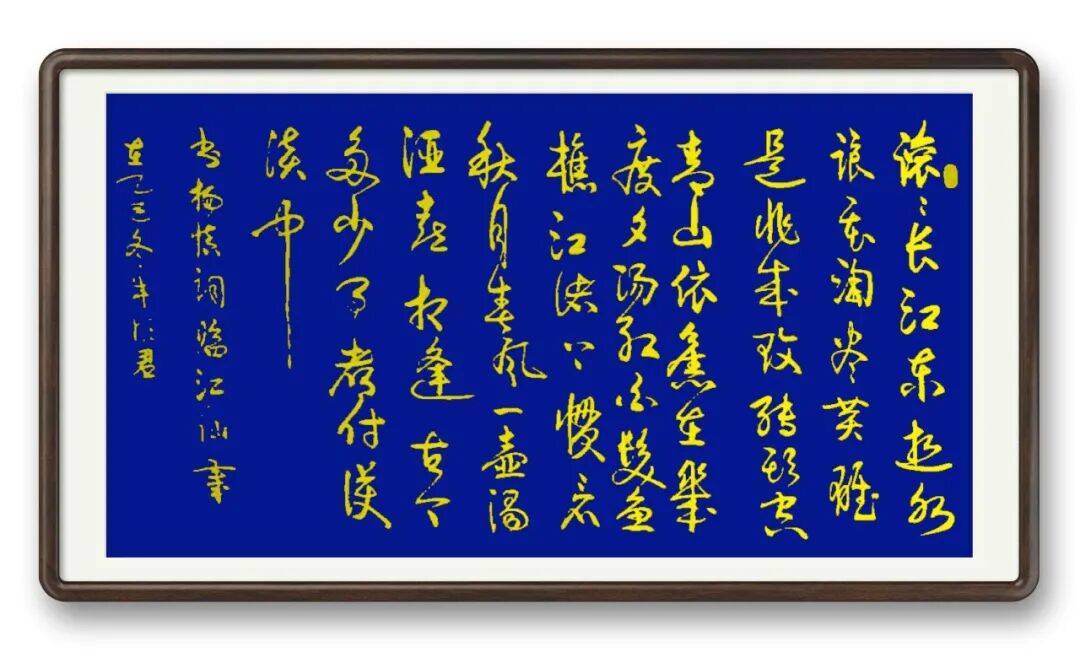 滚滚长江东逝水
浪花淘尽英雄
是非成败转头空
青山依舊在幾
度夕阳红白髮鱼
樵江渚上惯看
秋月春风一壶浊
酒喜相逢古今
多少事都付
谈中
书杨慎词临江仙
乙巳冬 君